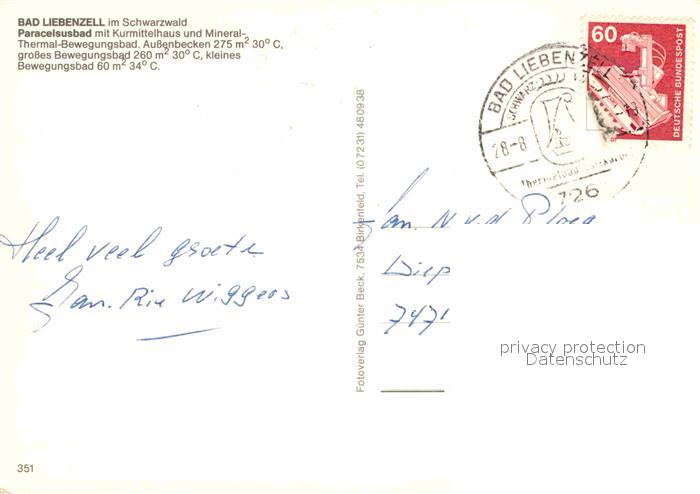 BAD LIEBENZELL im Schwarzwald
Paracelsusbad mit Kurmittelhaus und Mineral-
Thermal-Bewegungsbad. Außenbecken 275 m² 30° C,
großes Bewegungsbad 260 m² 30° C, kleines
Bewegungsbad 60 m² 34° C.
Heel veel groeten
Rie Wiggers
351
Fotoverlag Günter Beck, 7534 Birkenfeld, Tel. (07231) 480938
60
DEUTSCHE BUNDESPOST
BAD LIEBENZELL
28-8
726
N v.d Ploeg
Diep
7471
privacy protection
Datenschutz